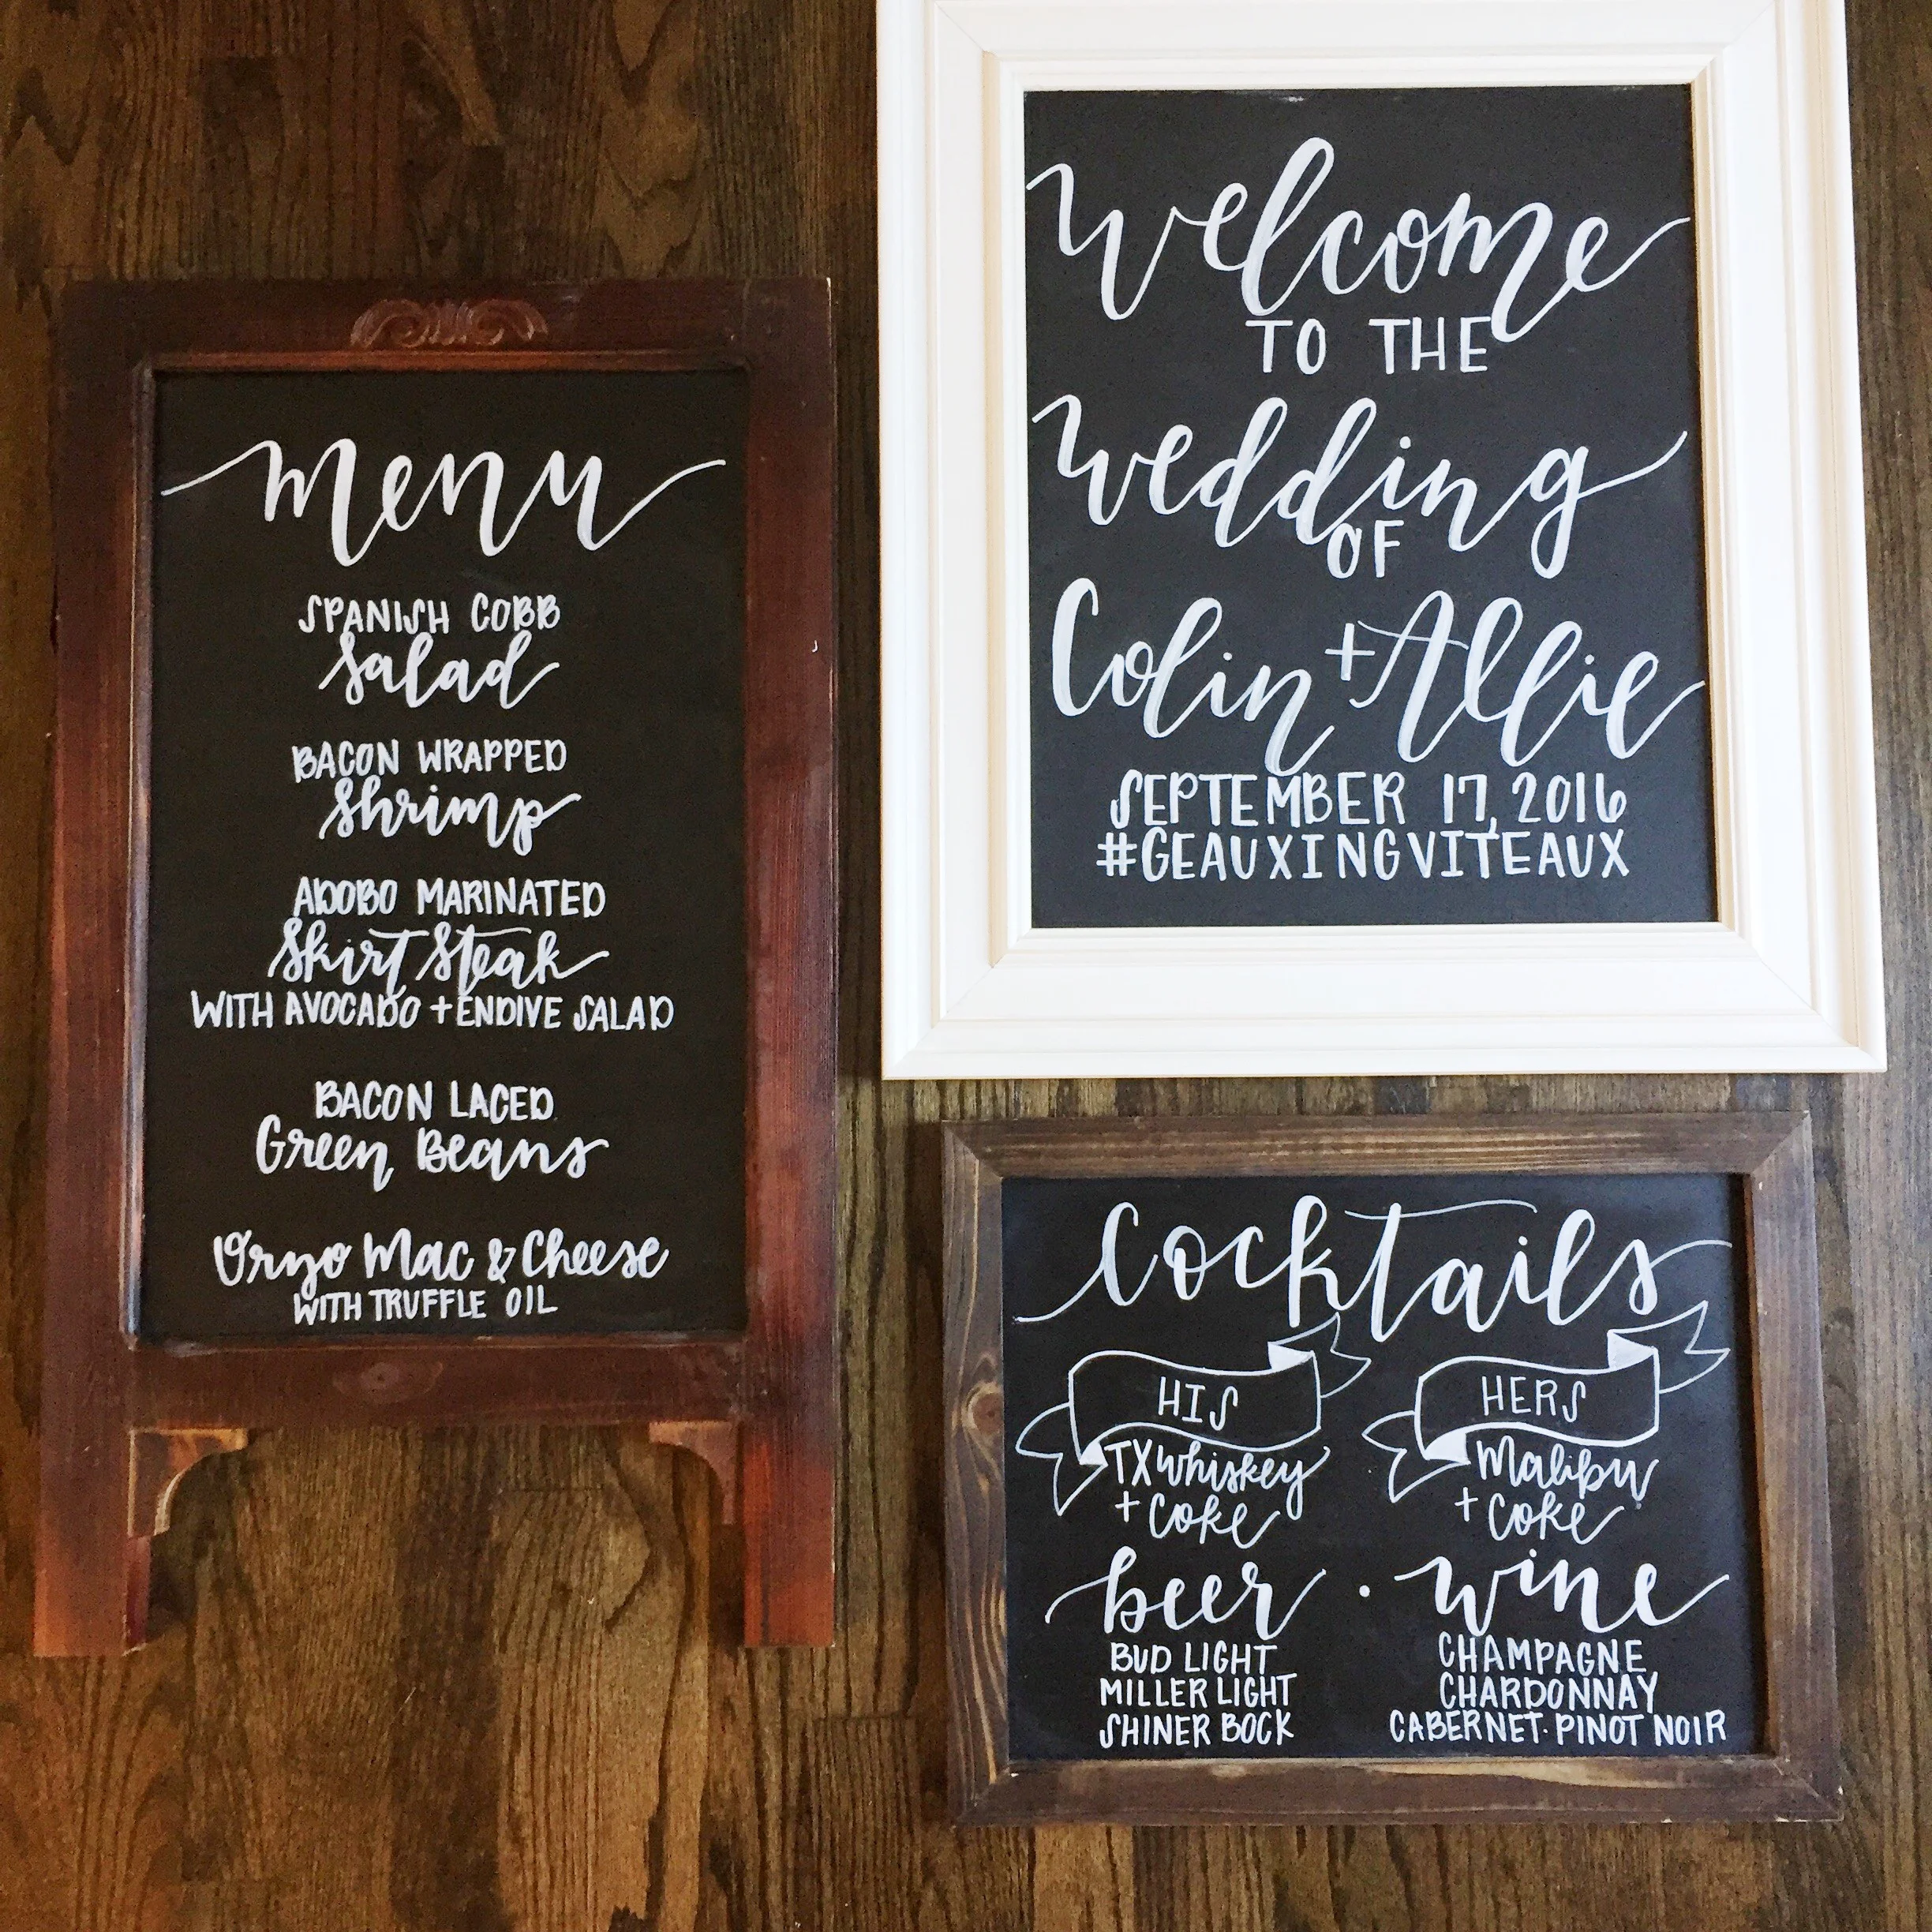 menu
SPANISH COBB
Salad
BACON WRAPPED
Shrimp
ADOBO MARINATED
Skirt Steak
WITH AVOCADO + ENDIVE SALAD
BACON LACED
Green Beans
Oryo Mac & Cheese
WITH TRUFFLE OIL
Welcome
TO THE
Wedding
OF
Colin + Allie
SEPTEMBER 17, 2016
#GEAUXINGVITEAUX
Cocktails
HIS
TX Whiskey
+ Coke
HERS
Malibu
+ Coke
beer · wine
BUD LIGHT
MILLER LIGHT
SHINER BOCK
CHAMPAGNE
CHARDONNAY
CABERNET · PINOT NOIR